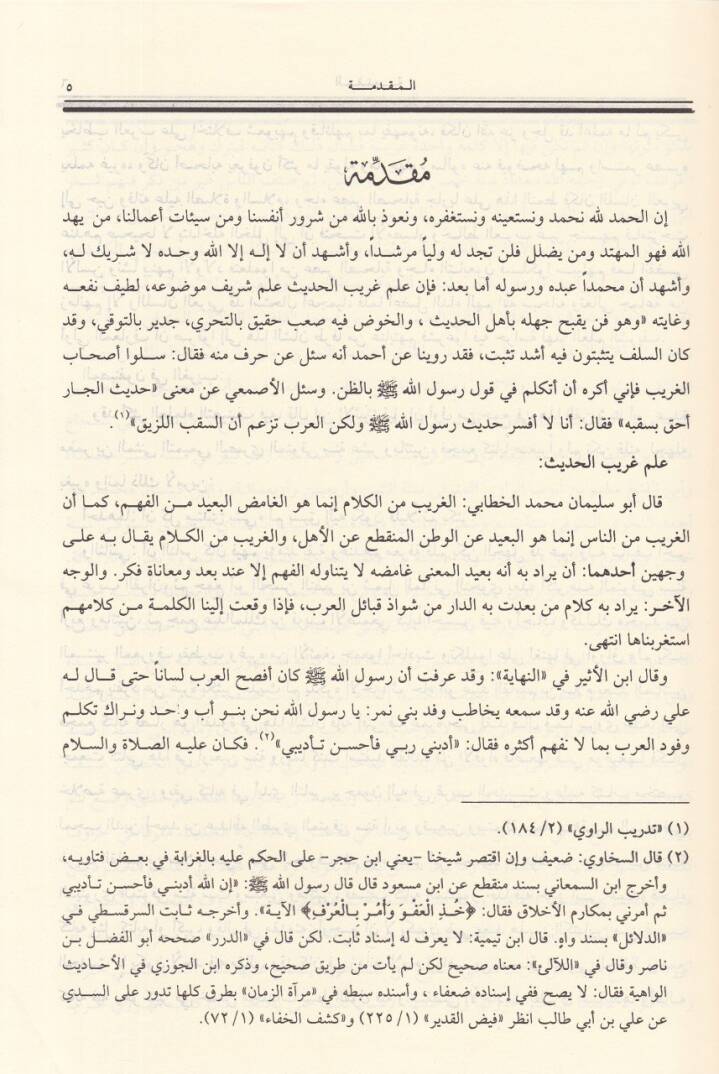 المقدمة ٥
مُقَدِّمة
إن الحمد لله نحمد ونستعينه ونستغفره، ونعوذ بالله من شرور أنفسنا ومن سيئات أعمالنا، من يهد
الله فهو المهتد ومن يضلل فلن تجد له ولياً مرشداً، وأشهد أن لا إله إلا الله وحده لا شريك له،
وأشهد أن محمداً عبده ورسوله أما بعد: فإن علم غريب الحديث علم شريف موضوعه، لطيف نفعه
وغايته «وهو فن يقبح جهله بأهل الحديث ، والخوض فيه صعب حقيق بالتحري، جدير بالتوقي، وقد
كان السلف يتثبتون فيه أشد تثبت، فقد روينا عن أحمد أنه سئل عن حرف منه فقال: سلوا أصحاب
الغريب فإني أكره أن أتكلم في قول رسول الله ﷺ بالظن. وسئل الأصمعي عن معنى «حديث الجار
أحق بسقبه» فقال: أنا لا أفسر حديث رسول الله ﷺ ولكن العرب تزعم أن السقب اللزيق»(١).
علم غريب الحديث:
قال أبو سليمان محمد الخطابي: الغريب من الكلام إنما هو الغامض البعيد من الفهم، كما أن
الغريب من الناس إنما هو البعيد عن الوطن المنقطع عن الأهل، والغريب من الكلام يقال به على
وجهين أحدهما: أن يراد به أنه بعيد المعنى غامضه لا يتناوله الفهم إلا عند بعد ومعاناة فكر. والوجه
الآخر: يراد به كلام من بعدت به الدار من شواذ قبائل العرب، فإذا وقعت إلينا الكلمة من كلامهم
استغربناها انتهى.
وقال ابن الأثير في «النهاية»: وقد عرفت أن رسول الله ﷺ كان أفصح العرب لساناً حتى قال له
علي رضي الله عنه وقد سمعه يخاطب وفد بني نمر: يا رسول الله نحن بنو أب واحد ونراك تكلم
وفود العرب بما لا نفهم أكثره فقال: «أدبني ربي فأحسن تأديبي»(٢). فكان عليه الصلاة والسلام
(١) «تدريب الراوي» (٢/ ١٨٤).
(٢) قال السخاوي: ضعيف وإن اقتصر شيخنا -يعني ابن حجر- على الحكم عليه بالغرابة في بعض فتاويه،
وأخرج ابن السمعاني بسند منقطع عن ابن مسعود قال قال رسول الله ﷺ: «إن الله أدبني فأحسن تأديبي
ثم أمرني بمكارم الأخلاق فقال: ﴿خُذِ الْعَفْوَ وَأْمُرْ بِالْعُرْفِ﴾ الآية». وأخرجه ثابت السرقسطي في
«الدلائل» بسند واهٍ. قال ابن تيمية: لا يعرف له إسناد ثابت. لكن قال في «الدرر» صححه أبو الفضل بن
ناصر وقال في «اللآلئ»: معناه صحيح لكن لم يأت من طريق صحيح، وذكره ابن الجوزي في الأحاديث
الواهية فقال: لا يصح ففي إسناده ضعفاء ، وأسنده سبطه في «مرآة الزمان» بطرق كلها تدور على السدي
عن علي بن أبي طالب انظر «فيض القدير» (١/ ٢٢٥) و«كشف الخفاء» (١/ ٧٢).